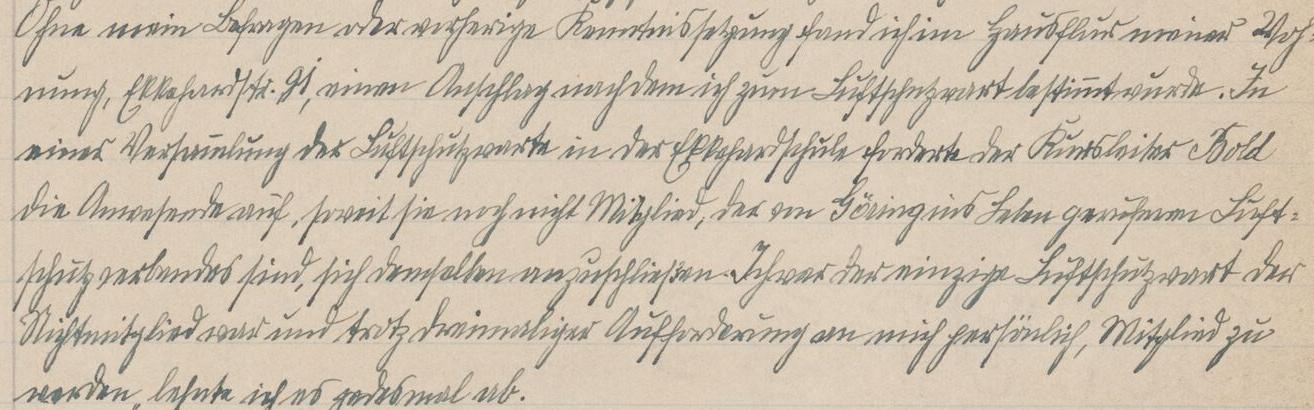 Ohne mein Befragen oder vorherige Kenntnissetzung fand ich im Hausflur meiner Woh=
nung, Ekkehardstr. 91, einen Anschlag nach dem ich zum Luftschutzwart bestim̄t wurde. In
einer Versam̄lung der Luftschutzwarte in der Ekkehardschule forderte der Kursleiter Bold
die Anwesende auf, soweit sie noch nicht Mitglied, des von Göring ins Leben gerufenen Luft=
schutzverbandes sind, sich demselben anzuschließen. Ich war der einzige Luftschutzwart der
Nichtmitglied war und trotz dreimaliger Aufforderung an mich persönlich, Mitglied zu
werden, lehnte ich es jedesmal ab.